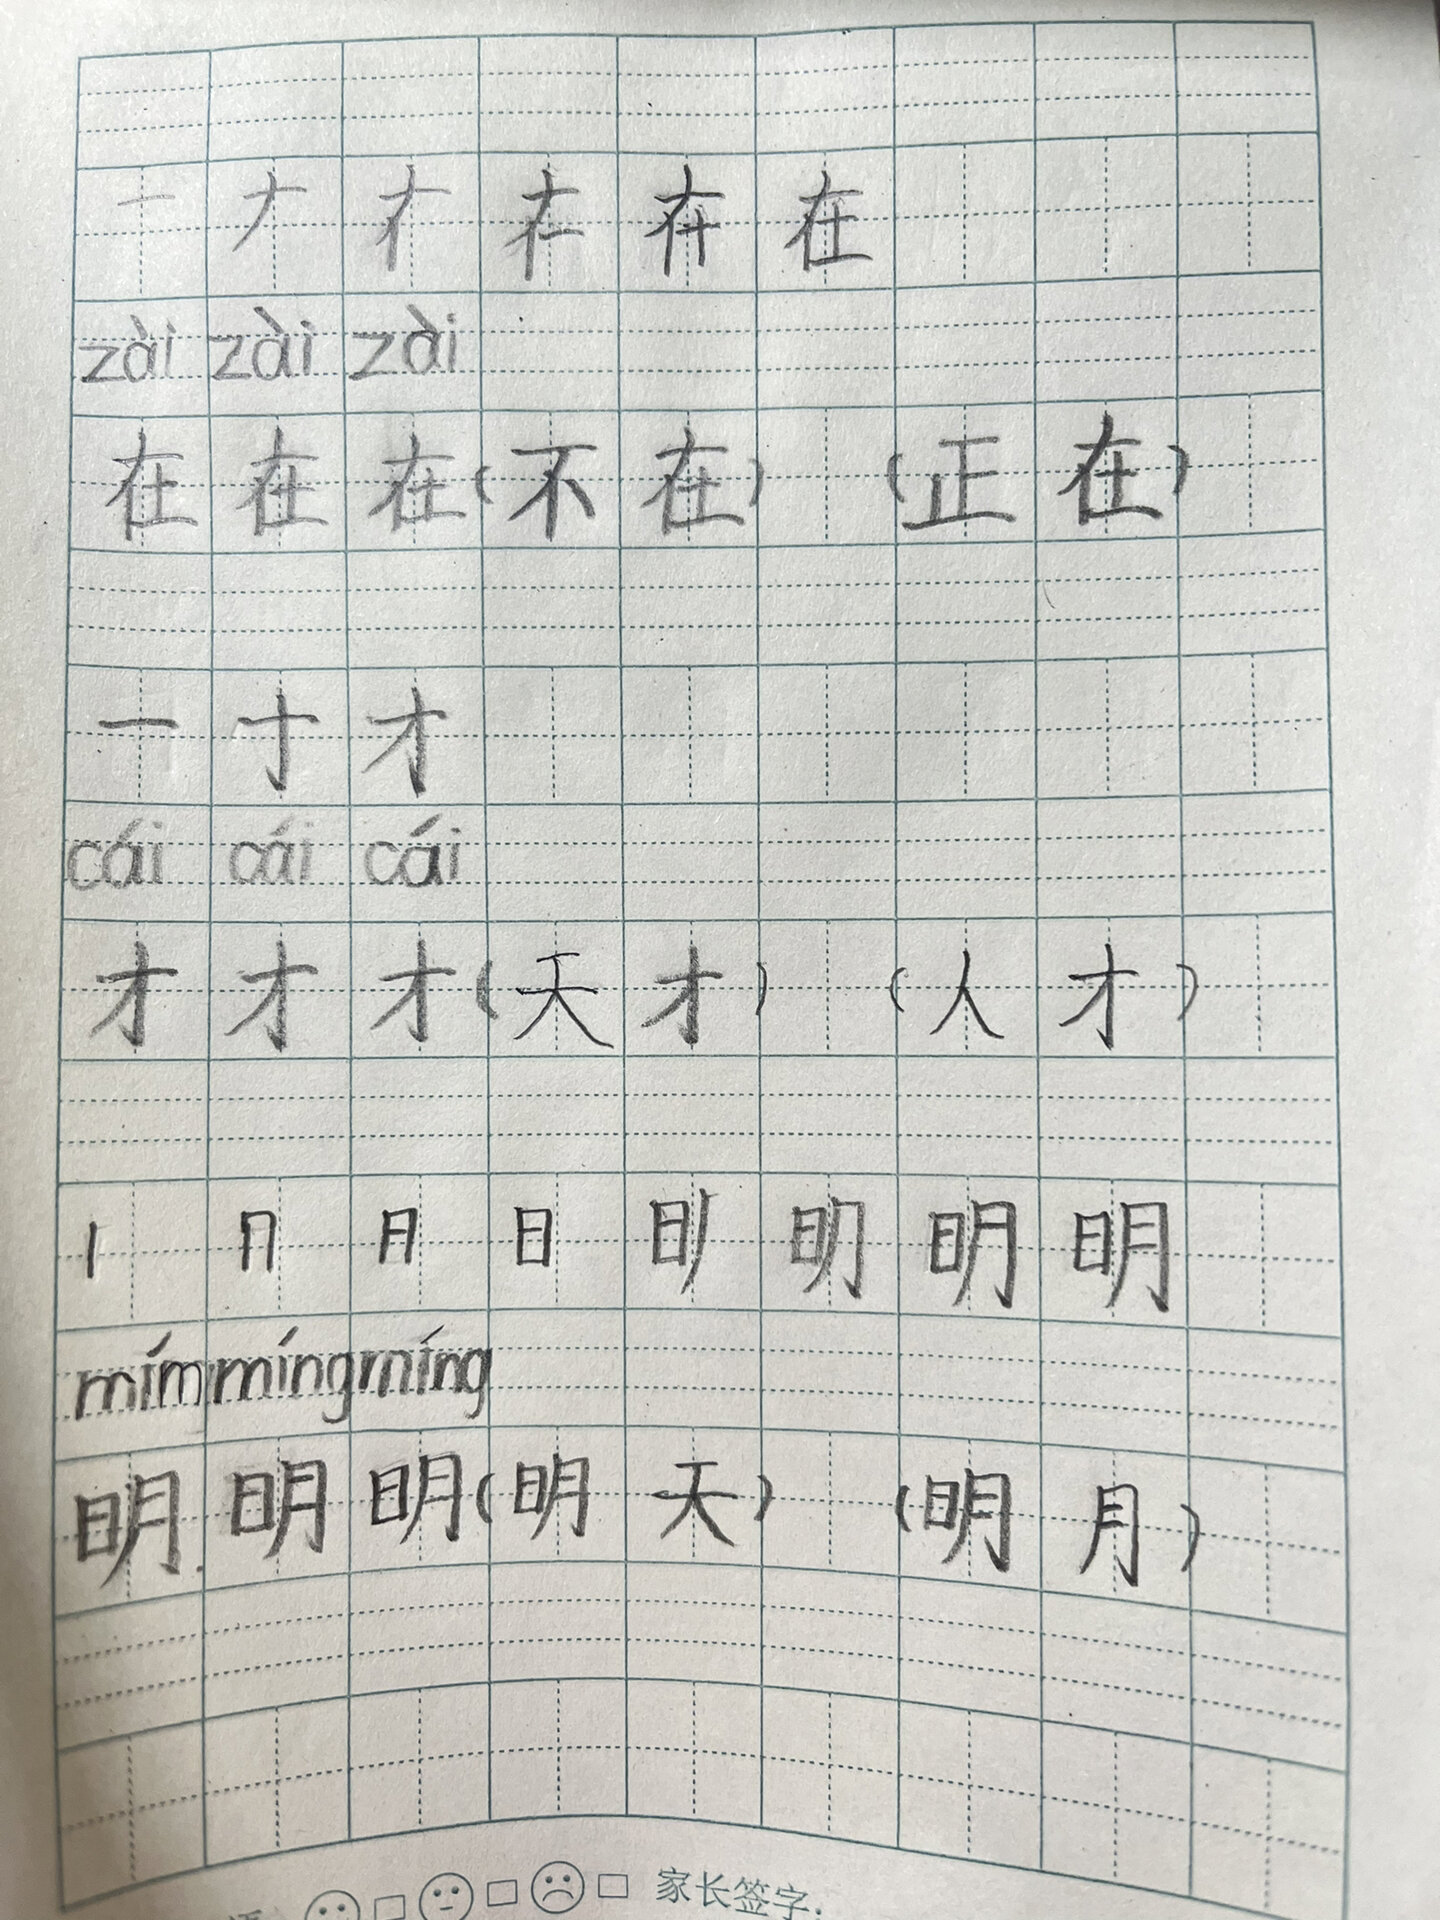 一 ナ 𠂇 在 在
zài zài zài
在 在 在(不 在) (正 在)
一 寸 才
cái cái cái
才 才 才(天 才) (人 才)
丨 冂 月 日 明 明 明
mím míng míng
明 明 明(明 天) (明 月)
家长签字: